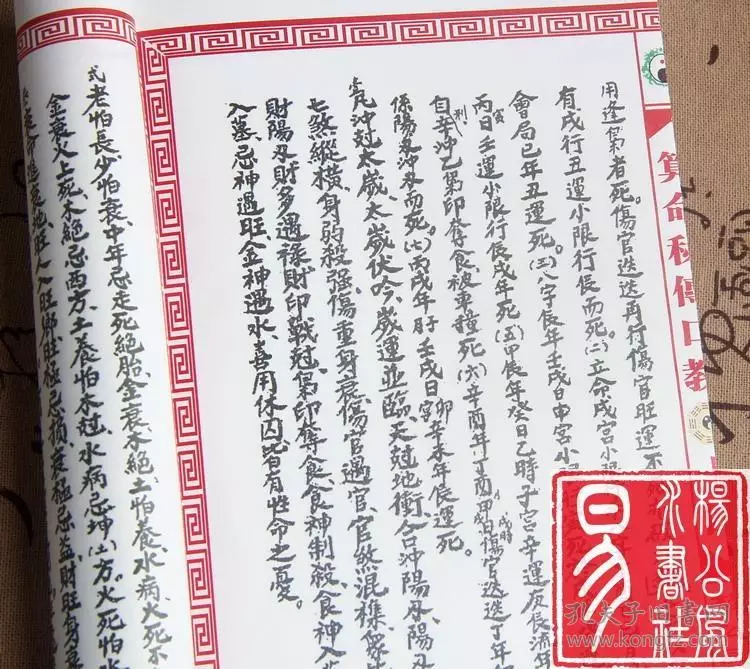 算命秘傳口教
用逢梟者死。傷官迭迭再行傷官旺運不
有戌行丑運小限行辰而死。（二）立命戌宮小限
會局巳年丑運死。（三）八字辰年壬戌日申宮小限
丙寅日壬運小限行辰戌年死（五）甲辰年癸日乙時子宮辛運
自辛沖乙梟印奪食被車撞死（六）辛酉年丁酉甲戌日戌時傷官迭迭丁年
係陽刃沖刃而死。（七）丙戌年 壬戌日 辛未年辰運死。
沖尅太歲太歲伏吟歲運並臨天尅地衝合沖陽刃陽刃
七煞縱橫身弱殺强傷重身衰傷官遇官官煞混雜
財陽刃財多遇祿財印戰尅梟印奪食食神制殺食神入
入墓忌神遇旺金神遇水喜用休囚皆有性命之憂。
式老怕長少怕衰中年忌走死絕胎金衰木絕土怕養水病火死不
金衰火上死木絕忌西方土養怕木尅水病忌坤（土）方。火死怕水
地旺人入旺鄉旺極忌損衰極忌益財旺身衰
易
楊公風
水書社
孔夫子旧書网
www.kongfz.com